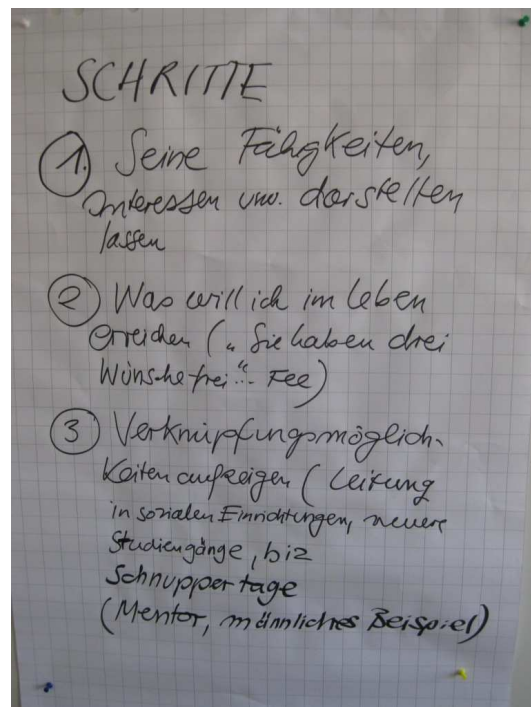 SCHRITTE
1. Seine Fähigkeiten,
Interessen usw. darstellen
lassen
2 Was will ich im Leben
erreichen („Sie haben drei
Wünsche frei“... Fee)
3 Verknüpfungsmöglich-
keiten aufzeigen (Leitung
in sozialen Einrichtungen, neuere
Studiengänge, biz
Schnuppertage
(Mentor, männliches Beispiel)